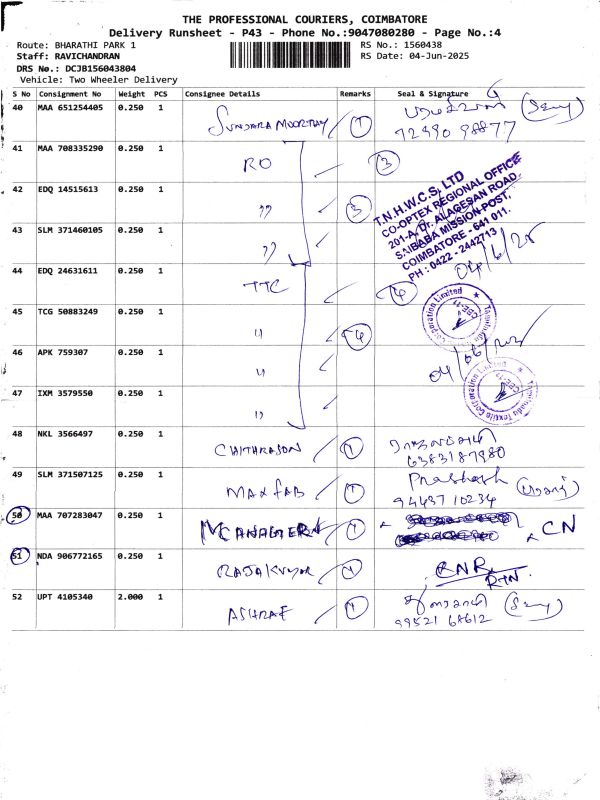 THE PROFESSIONAL COURIERS, COIMBATORE
Delivery Runsheet - P43 - Phone No.:9047080280 - Page No.:4
Route: BHARATHI PARK 1 RS No.: 1560438
Staff: RAVICHANDRAN RS Date: 04-Jun-2025
DRS No.: DCJB156043804
Vehicle: Two Wheeler Delivery
S No Consignment No Weight PCS Consignee Details Remarks Seal & Signature
40 MAA 651254405 0.250 1 SUNDARA MOORTHY 1
72990 98877
41 MAA 708335290 0.250 1 RO 3
42 EDQ 14515613 0.250 1 " 3
T.N.H.W.C.S. LTD
CO-OPTEX REGIONAL OFFICE
201-A, Dr. ALAGESAN ROAD,
SAIBABA MISSION POST,
COIMBATORE - 641 011.
PH : 0422 - 2442713
43 SLM 371460105 0.250 1 "
04/6/25
44 EDQ 24631611 0.250 1 TTC 4
45 TCG 50883249 0.250 1 " 4
46 APK 759307 0.250 1 "
04/06/2025
47 IXM 3579550 0.250 1 "
48 NKL 3566497 0.250 1 CHITHRASON 1
6383187980
49 SLM 371507125 0.250 1 MAXFAB 1 Prakash
94437 10234
50 MAA 707283047 0.250 1 MCANAGTERN 1 CN
51 NDA 906772165 0.250 1 RAJAKUMAR 1 CNR
RTN
52 UPT 4105340 2.000 1 ASHRAF 1
99521 68612